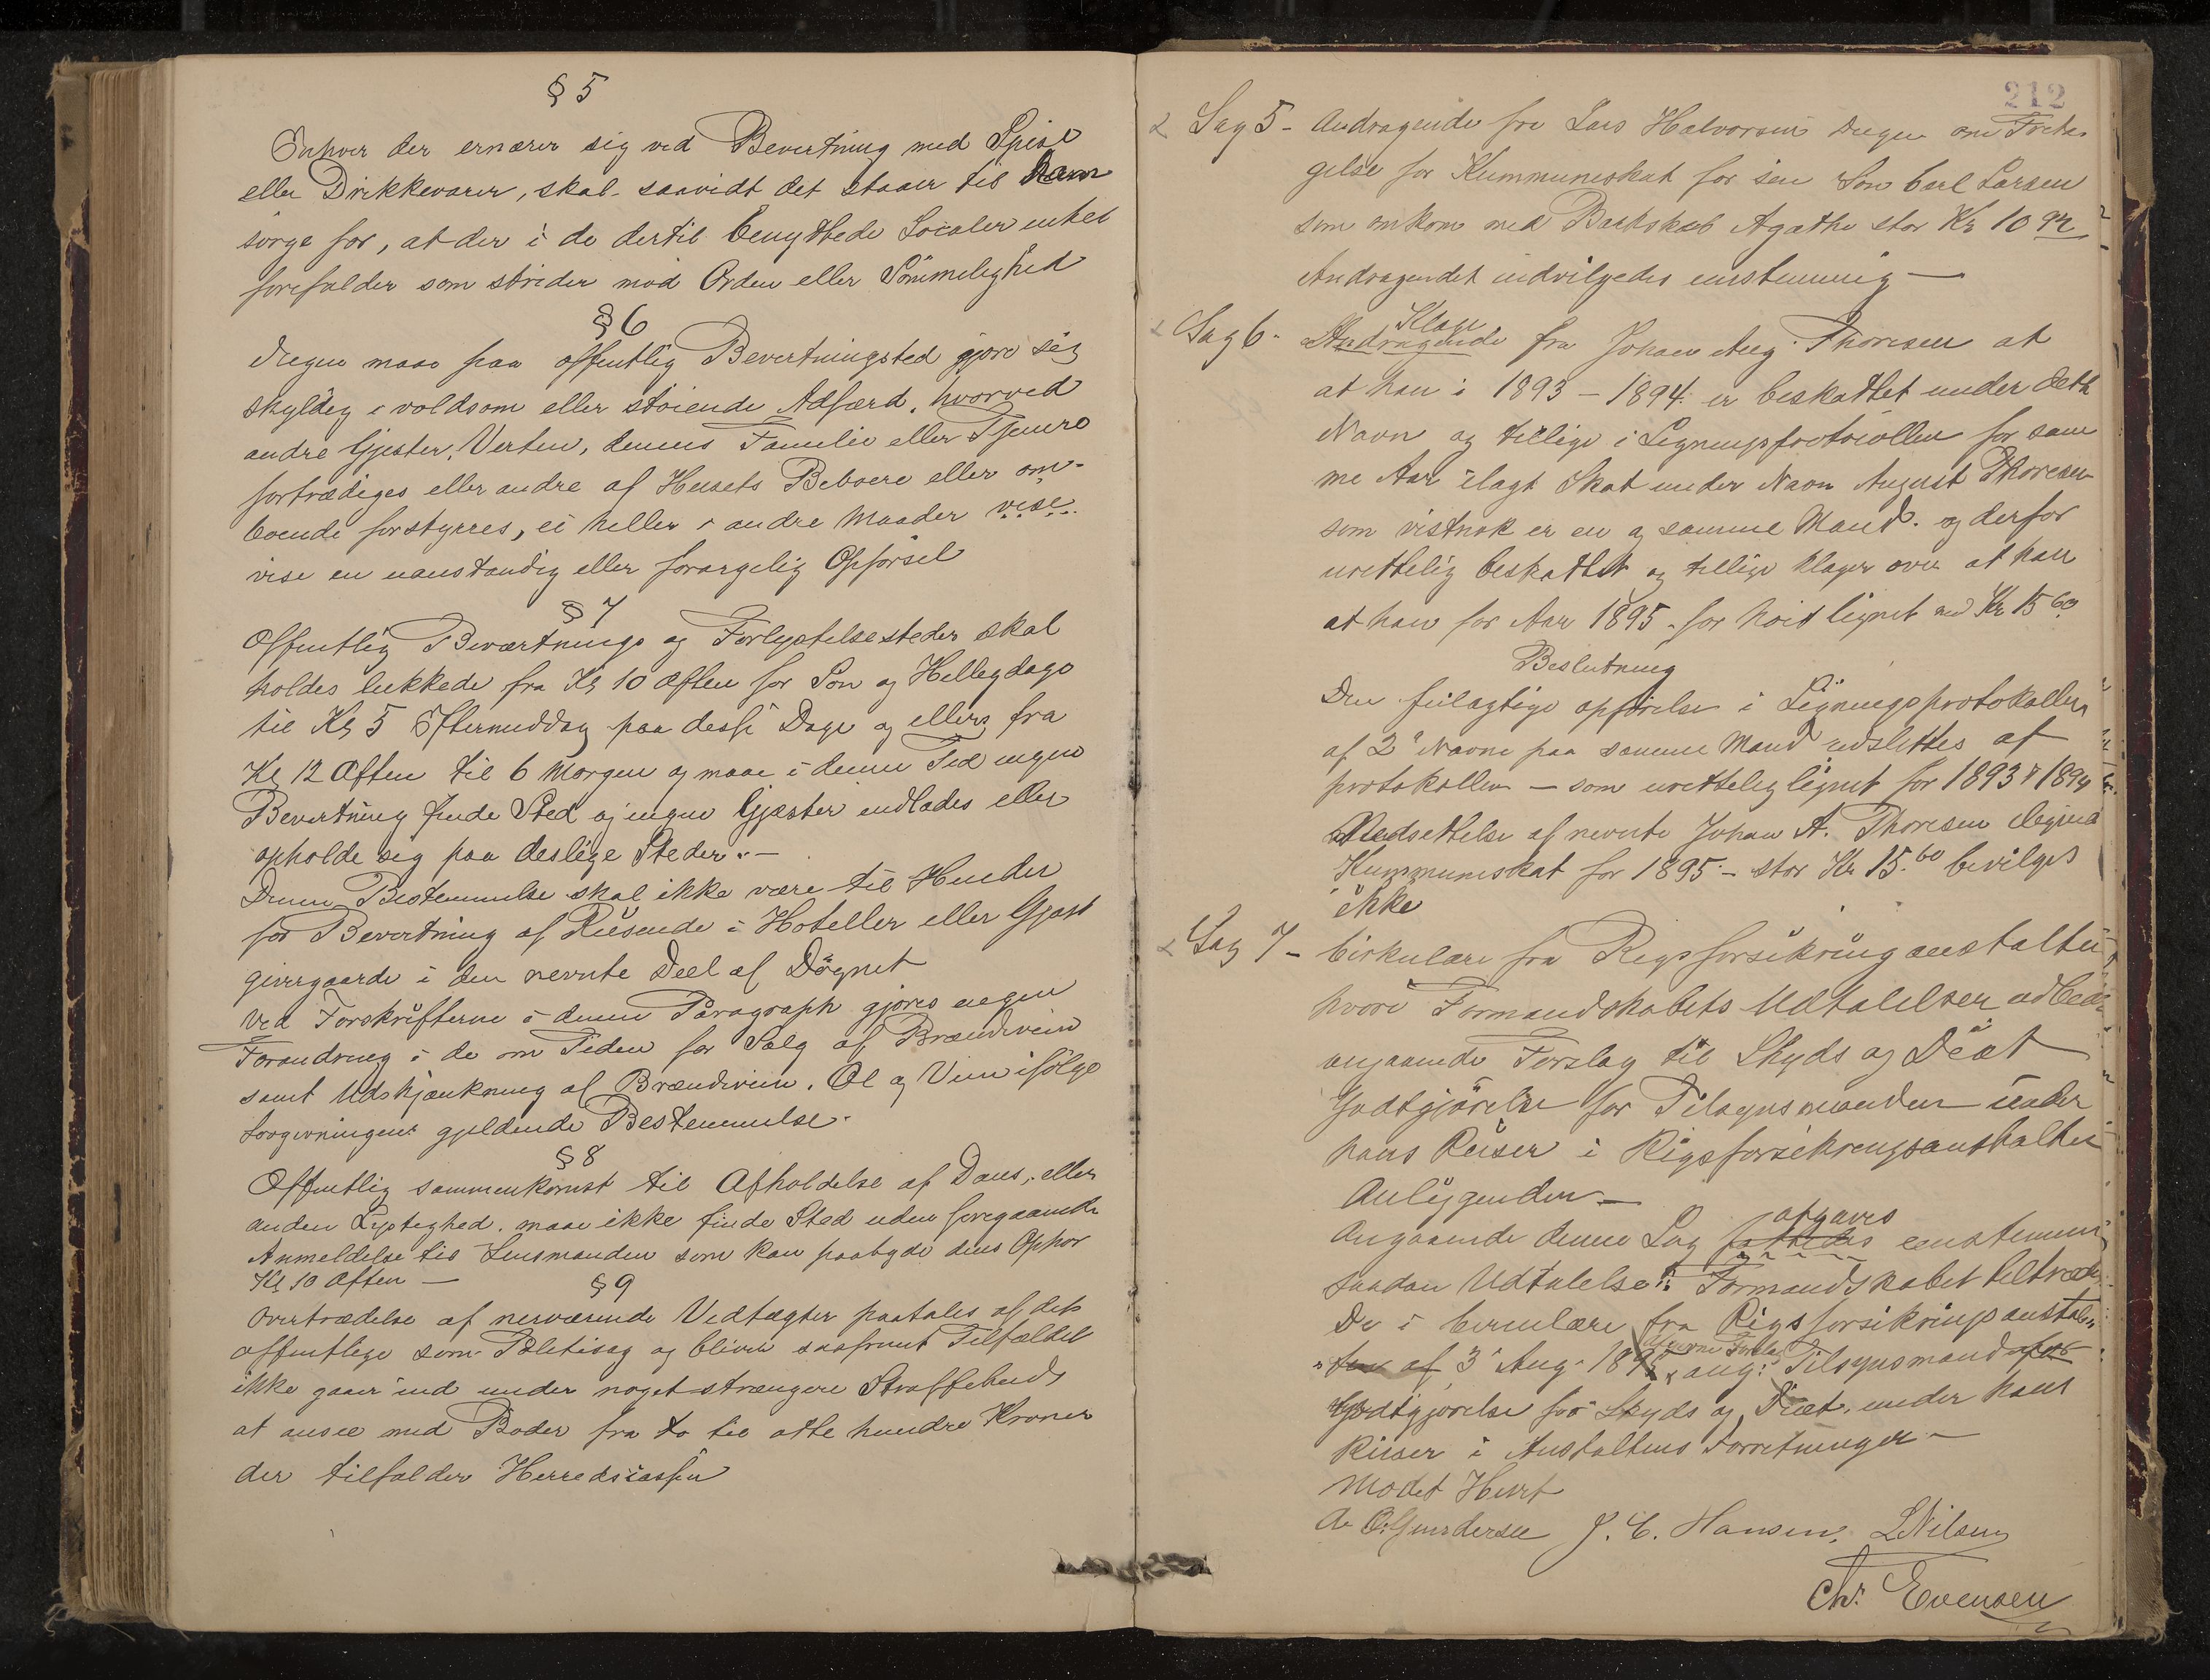 § 5
Enhver der ernærer sig ved Bevertning med Spise
eller Drikkevarer, skal saavidt det staaer til ham
sørge for, at der i de dertil benyttede Localer intet
forefalder som strider mod Orden eller Sömmelighed
§ 6
Ingen maae paa offentlig Bevertningsted gjøre sig
skyldig i voldsom eller støiende Adfærd, hvorved
andre Gjester, Verten, dennes Familie eller Tjenere
fortrædiges eller andre af Husets Beboere eller om-
boende forstyrres, ei heller i andre Maader vise
vise en uanstændig eller forargelig Opførsel
§ 7
Offentlig Beværtnings og Forlystelsesteder skal
holdes lukkede fra Kl 10 Aften for Søn og Hellegdage
til Kl 5 Eftermiddag paa desse Dage og ellers fra
Kl 12 Aften til 6 Morgen og maae i denne Tid ingen
Bevertning finde Sted og ingen Gjæster indlades eller
opholde sig paa deslige Steder.-
Denne Bestemmelse skal ikke være til Hinder
for Bevertning af Reisende i Hoteller eller Gjæst
givergaarde i den nevnte Deel af Døgnet
Ved Forskrifterne i denne Paragraph gjøres ingen
Forandring i de om Tiden for Salg af Brændevin
samt Udskjænkning af Brændeviin, Øl og Viin ifølge
Lovgivningens gjeldende Bestemmelse.
§ 8
Offentlig sammenkomst til Afholdelse af Dans, eller
anden Lystighed, maae ikke finde Sted uden foregaaende
Anmeldelse til Lensmanden som kan paabyde dens Ophør
Kl 10 Aften —
§ 9
Overtrædelse af nerværende Vedtægter paatales af det
offentlige som Politisag og bliver saafremt Tilfældet
ikke gaaer ind under noget strængere Straffebud
at ansee med Bøder fra to til otte hundre Kroner
der tilfalder Herredscassen
212
Sag 5 - Andragende fra Lars Halvorsen om Frita-
gelse for Kummuneskat for sin Søn Carl Larsen
som omkom med Barkskib Agathe stor Kr 10
Andragendet indvilgedes enstemmig —
Sag 6 - Andragende Klage fra Johan Aug Thoresen at
at han i 1893 - 1894 er beskattet under dette
Navn og tillige i Ligningsprotocollen for sam
me Aar ilagt Skat under Navn August Thoresen
som vistnok er en og samme Mand. og derfor
urettelig beskattet og tillige klager over at han
at han for Aar 1895 - for høit lignet med Kr 15 60
Beslutning
Den feilagtige opførelse i Ligningsprotokollen
af 2 Navne paa samme Mand udslettes af
protokollen - som urettelig lignet for 1893 1894
Nedsettelse af nevnte Johan A. Thoresen
Kummuneskat for 1895 - stor Kr 15.60 bevilges
ikke
Sag 7 - Cirkulære fra Rigsforsikringanstalten
hvori Formandskabets Udtalelser udbedes
angaaende Forslag til Skyds og Diæt
Godtgjörelse for Tilsynsmanden under
hans Reiser i Rigsforsikringsanstalten
Anliggender. —
Angaaende denne Sag fattedes afgaves enstemmig
saadan Udtalelse: Formandskabet tiltræder
De i Cirkulære fra Rigsforsikringsanstalten
af 3 Aug. 1895 ang: Tilsynsmand for
Godtgjørelse for Skyds og Diæt, under hans
Reiser i Anstaltens Forretninger —
Mødet Hevet
A. O. Gundersen J. C. Hansen, L Nilsen
Chr. Evensen